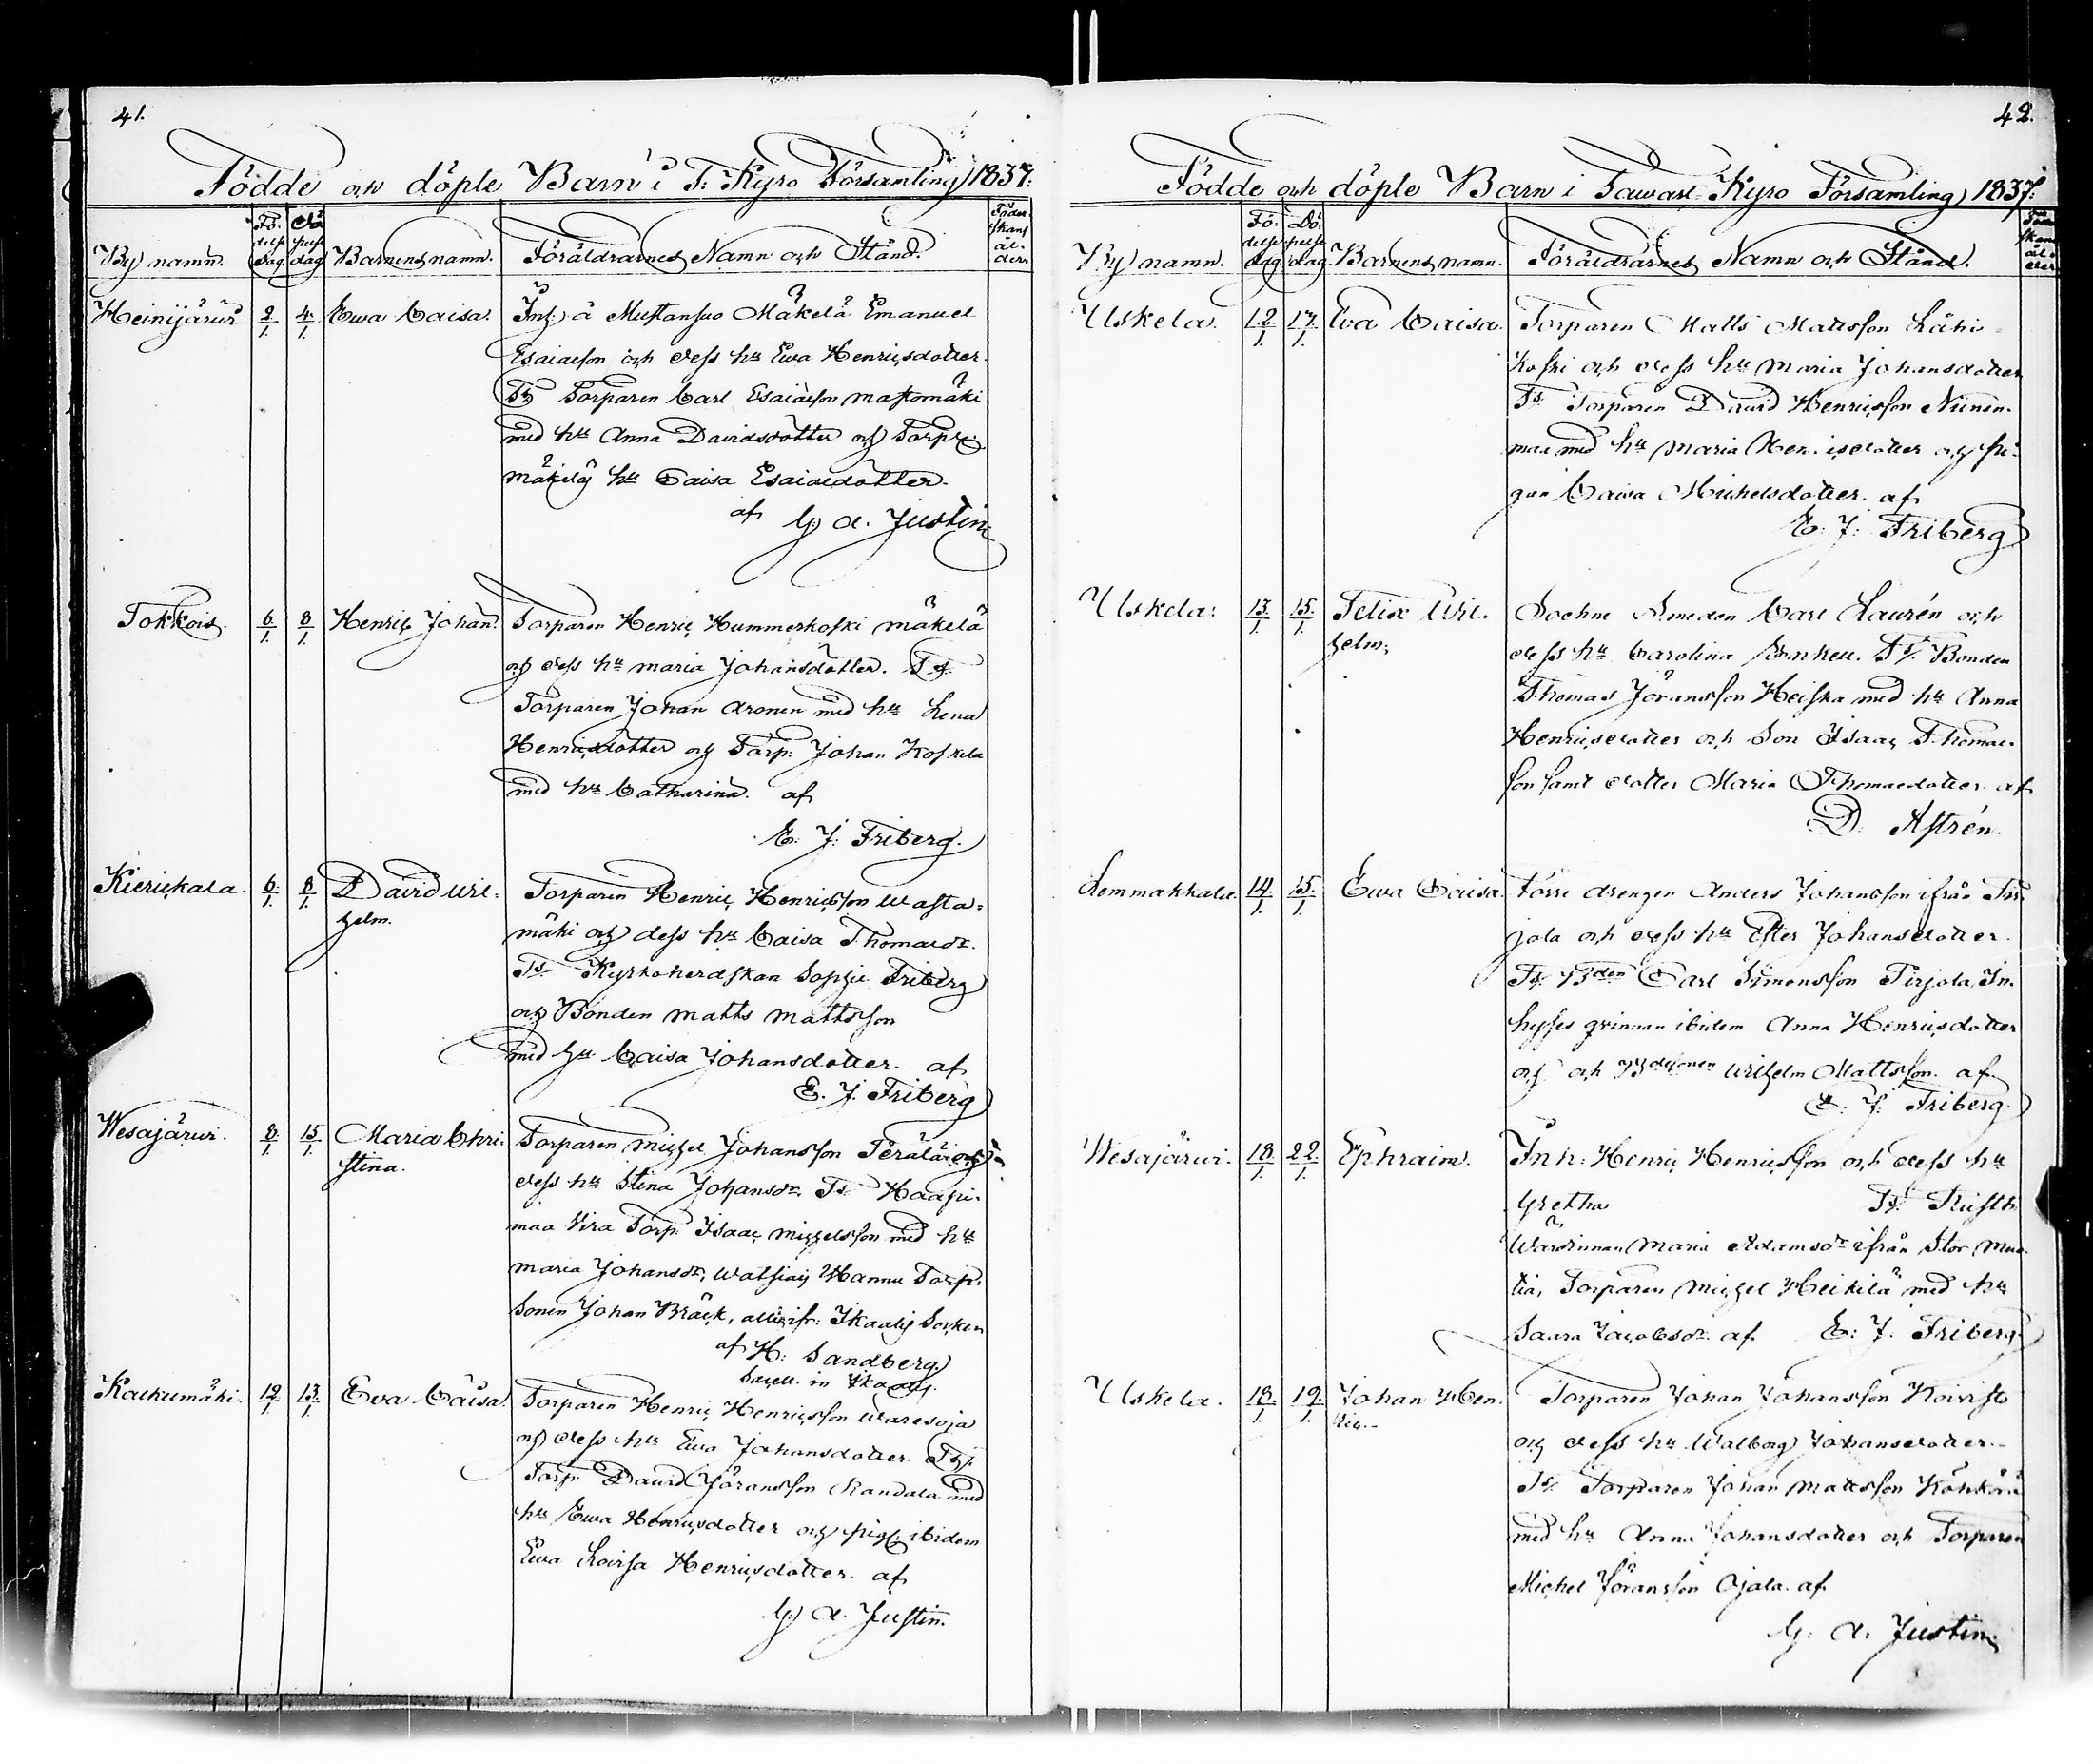 41.
Födde och döpte Barn i T: Kyro Församling 1837:
By namn. Födelse dag Döpelse dag Barnens namn. Föräldrarnes Namn och Stånd. Föderskans ålder
Heinijärwi 2/1. 4/1. Ewa Caisa. Inh: å Mustansuo Mäkelä Emanuel
Esaiaeson och dess hu Ewa Henricsdotter.
Ts Torparen Carl Esaiaeson Mastomäki
med hu Anna Davidsdotter och Torp:
Mäkiläs hu Caisa Esaiaedotter.
af G. A. Justin
Tokkois. 6/1. 8/1. Henric Johan. Torparen Henric Hummerkoski Mäkelä
och dess hu Maria Johansdotter. Ts.
Torparen Johan Aronen med hu Lena
Henricsdotter och Torp: Johan Koskela
med hu Catharina. af
E. J: Friberg.
Kierickala. 6/1. 8/1. David Wil-
helm.
Torparen Henric Henricsson Wasta-
mäki och dess hu Caisa Thomaedr.
Ts. Kyrkoherdskan Sophie Friberg
och Bonden Matts Mattsson
med hu Caisa Johansdotter. af
E. J. Friberg
Wesajärwi. 8/1. 15/1. Maria Chri-
stina.
Torparen Michel Johansson Perälä och
dess hu Stina Johansdr. Ts. Haapi-
maa Torp. Isaac Michelsson med hu
Maria Johansdr, Hannu Torp.
Sonen Johan Bräck, Ikaalis Socken
af H: Sandberg.
Sacell. in Ikaalis.
Kauhumäki. 12/1. 13/1. Eva Caisa. Torparen Henric Henricsson Waresoja
och dess hu Ewa Johansdotter. Ts.
Torp: David Jöransson Randala med
hu Ewa Henricsdotter och pig: ibidem
Ewa Lovisa Henricsdotter. af
G. A. Justin.
42.
Födde och döpte Barn i Tawast-Kyro Församling 1837:
By namn. Födelse dag Döpelse dag. Barnens namn. Föräldrarnes Namn och Stånd.
Uskela. 12/1. 17/1. Eva Caisa. Torparen Matts Mattsson Lähi-
koski och dess hu Maria Johansdotter
Ts. Torparen David Henricsson Niinin-
maa med hu Maria Henricsdotter och pi-
gan Caisa Michelsdotter. af
E: J: Friberg
Uskela: 13/1. 15/1. Felix Wil-
helm.
Sockne Smeden Carl Laurén och
dess hu Carolina Enkell. Ts. Bonden
Thomas Jöransson Heiska med hu Anna
Henricsdotter och Son Isaac Thomae-
son samt dotter Maria Thomaedotter. af
D. Astrén.
Lemmakkala. 14/1. 15/1. Ewa Caisa. Förre drengen Anders Johansson ifrån Tir-
jola och dess hu Ester Johansdotter.
Ts. Bden Carl Simonsson Tirjola, In-
hyses qvinnan ibidem Anna Henricsdotter
och och Bdesonen Wilhelm Mattsson. af
E. J. Friberg.
Wesajärwi. 18/1. 22/1. Ephraim. Inh: Henric Henricsson och dess hu
Gretha Ts. Rusth.
Wärdinnan Maria Adamsdr ifrån Stor Mul-
tia, Torparen Michel Heikilä med hu
Saara Jacobsdr. af E: J. Friberg.
Uskela. 18/1. 19/1. Johan Hen-
ric.
Torparen Johan Johansson Koivisto
och dess hu Walborg Johansdotter.
Ts. Torparen Johan Mattsson Könkörä
med hu Anna Johansdotter och Torparen
Michel Jöransson Ojala. af
G. A. Justin.